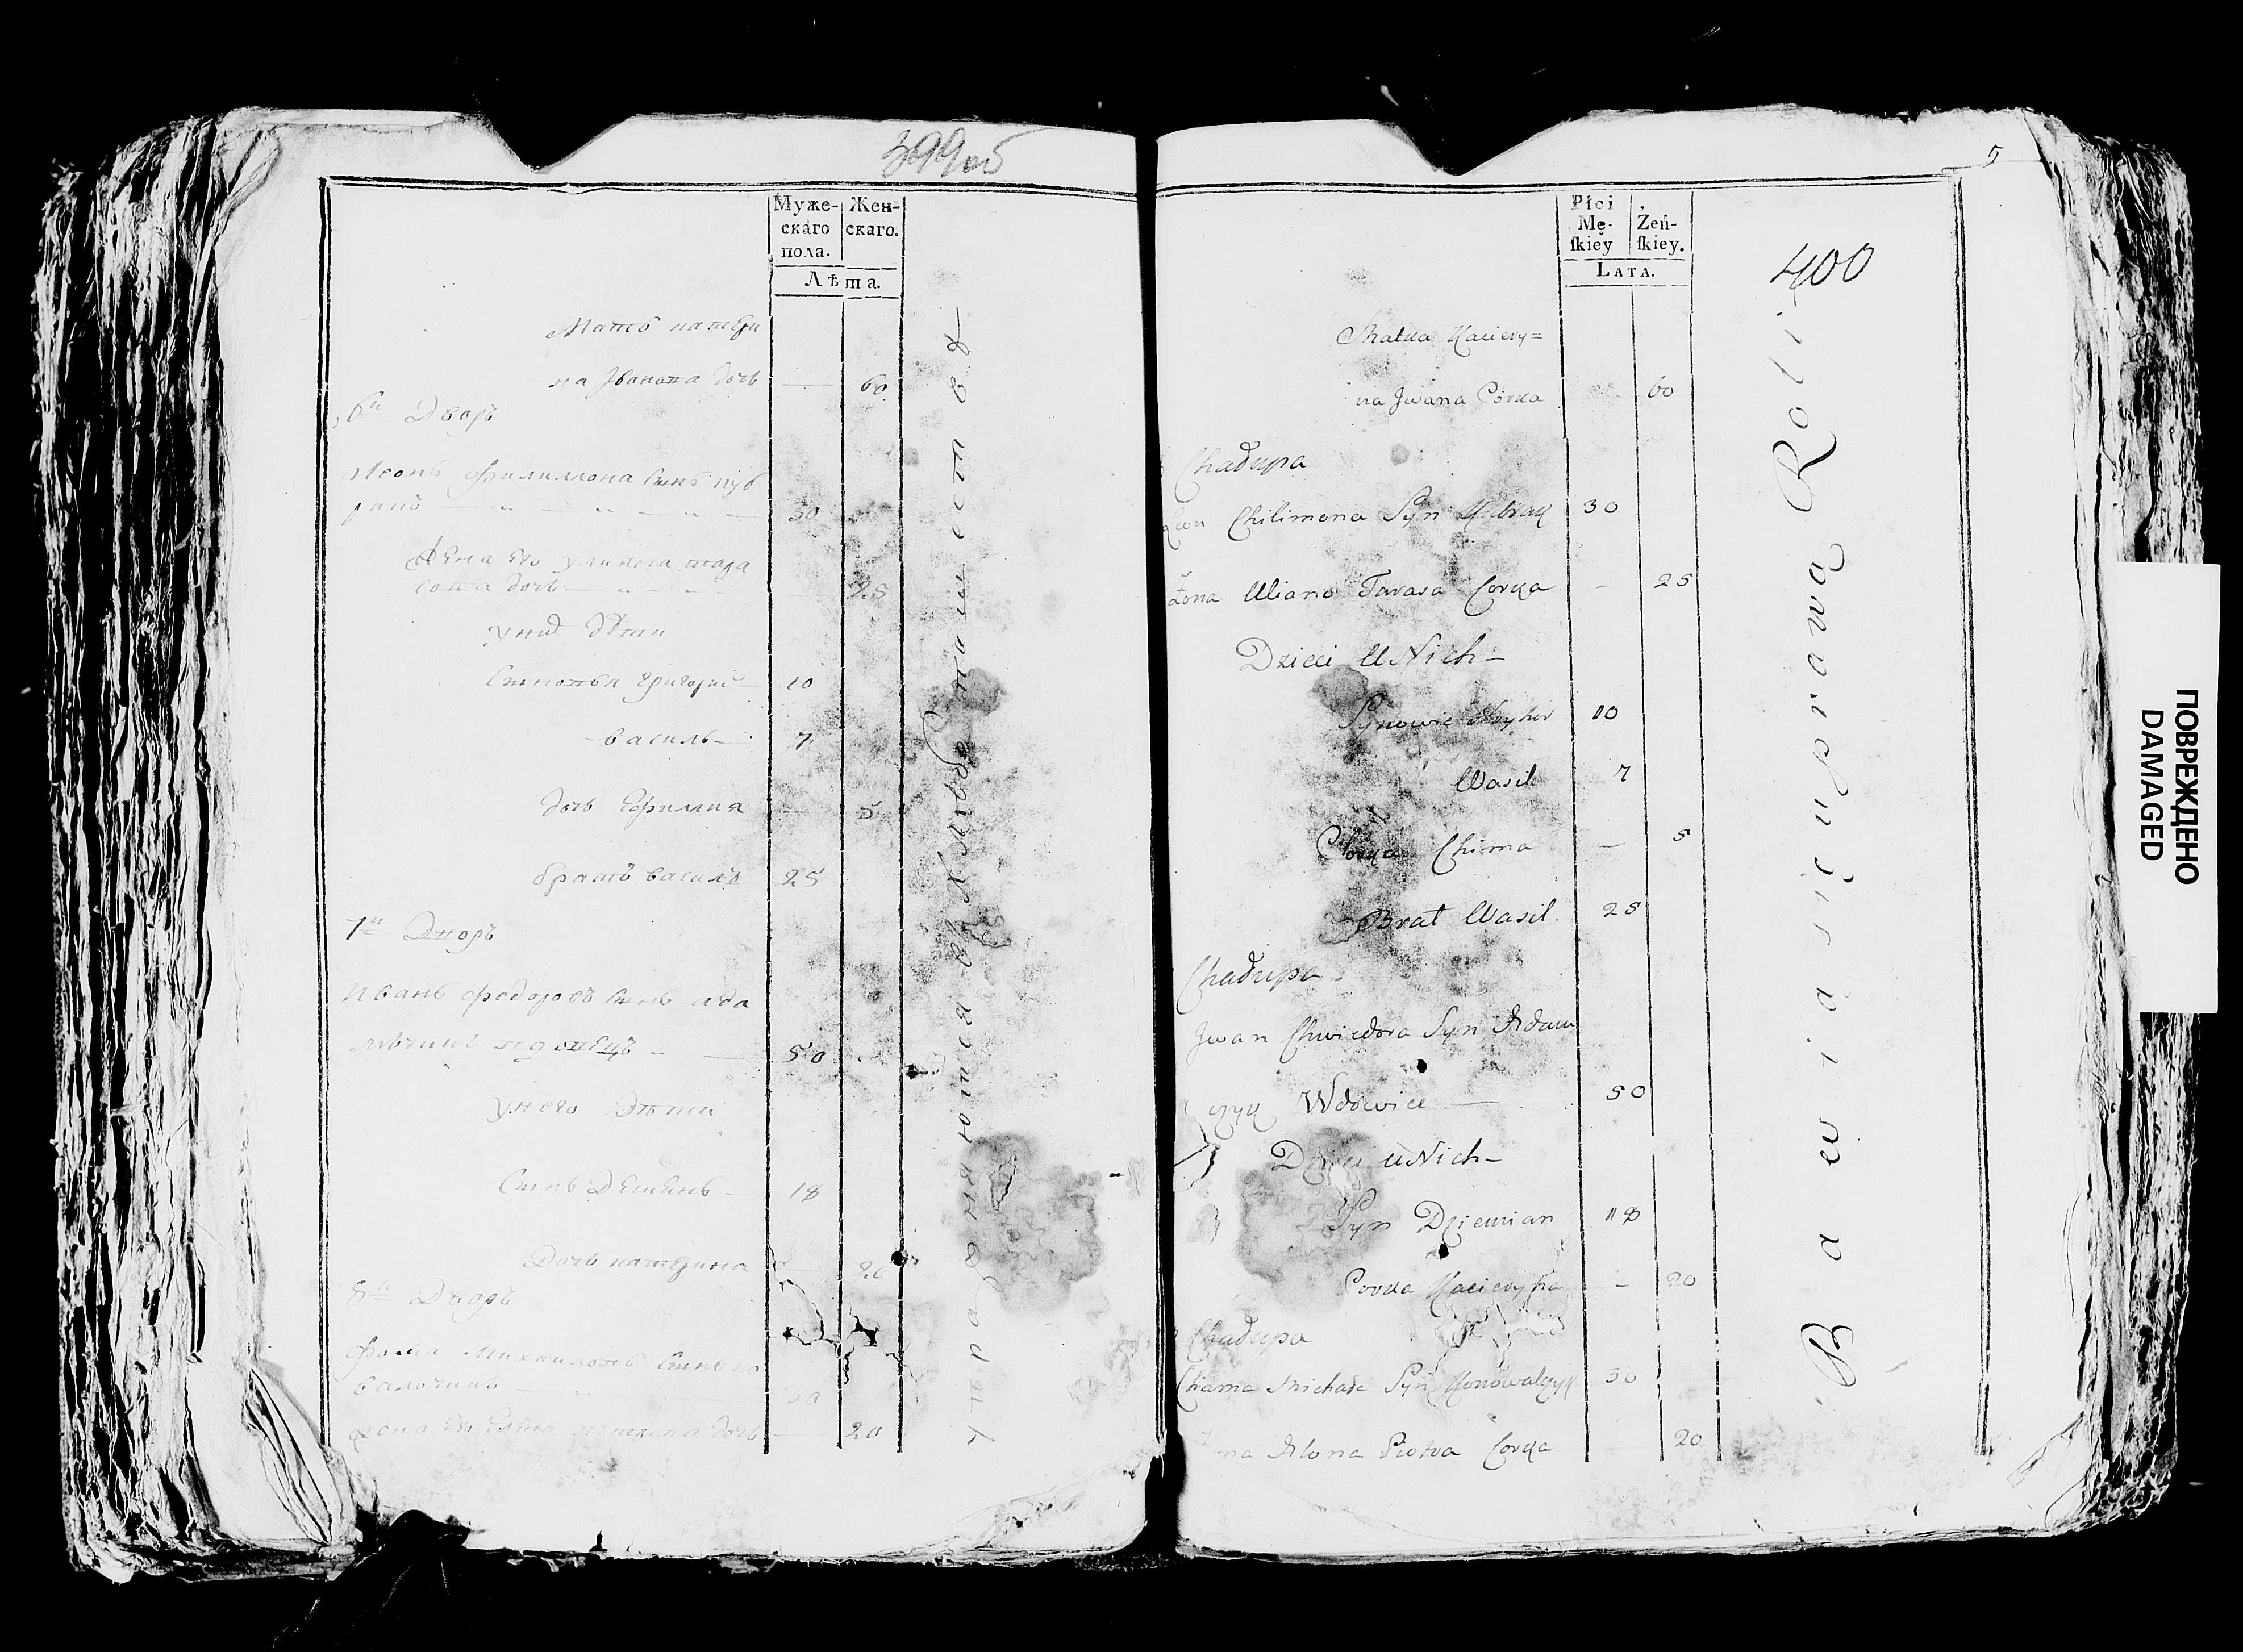 399об
Муже-
скаго
пола.
Жен-
скаго.
Лѣта.
Мать катери
на Иванова дочь — 60
6й Дворъ
Леонъ филимона сынъ куб
ракъ 30
Жена его улияна тара
сова дочь 25
у них дѣти
Сыновья григорий 10
василь 7
дочь Ефимия — 5
братъ василь 25
7й Дворъ
Иванъ федоровъ сынъ ада
мъчикъ вдовецъ 50
у него Дѣти
Сынъ Демянъ 18
Дочь катерина — 20
8й Дворъ
фома Михайловъ сынъ ко
валчикъ 30
жена его дочь — 20
упражняются в хлебопашестве
5
400
Płci
Mę-
ſkiey
Żeń-
ſkiey.
Lata.
Matka Kaciery=
na Jwana Córka 60
Chałupa
Leon Chilimona Syn Kubrak 30
Żona Uliana Tarasa Corka — 25
Dzieci u Nich —
Synowie Hryhor 10
Wasil 7
Corka Chima — 5
Brat Wasil 25
Chałupa
Jwan Chwiedora Syn Adam
czyk Wdowiec — 50
Dzieci u Nich —
Syn Dziemian 18
Corka Kacieryna — 20
Chałupa
Chama Michała Syn Konowalczyk 30
Żona Alona Piotra Corka 20
Bawią się uprawą Roli
ПОВРЕЖДЕНО
DAMAGED